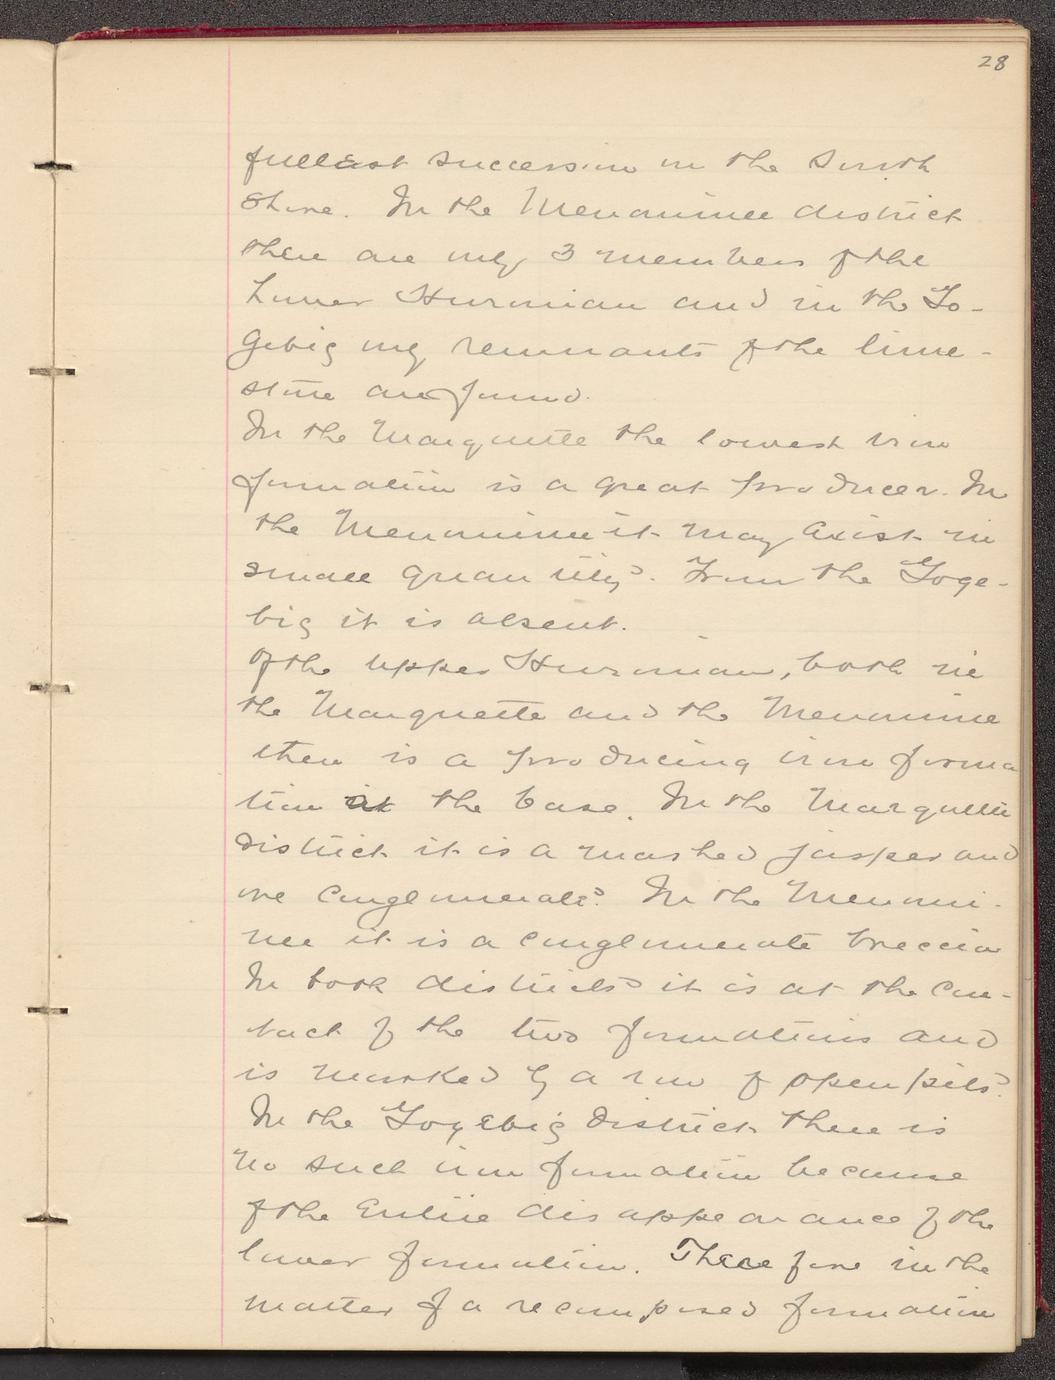 28
fullest succession in the South
Shore. In the Menominee district
there are only 3 members of the
Lower Huronian and in the Go-
gebic only remnants of the lime-
stone are found.
In the Marquette the lowest iron
formation is a great producer. In
the Menominee it may exist in
small quantity. From the Goge-
bic it is absent.
Of the Upper Huronian, both in
the Marquette and the Menominee
there is a producing iron forma
tion at the base. In the Marquette
district it is a mashed jasper and
ore conglomerate. In the Menomi-
nee it is a conglomerate breccia
In both districts it is at the con-
tact of the two formations and
is marked by a row of open pits.
In the Gogebic district there is
no such iron formation because
of the entire disappearance of the
lower formation. Therefore in the
matter of a recomposed formation